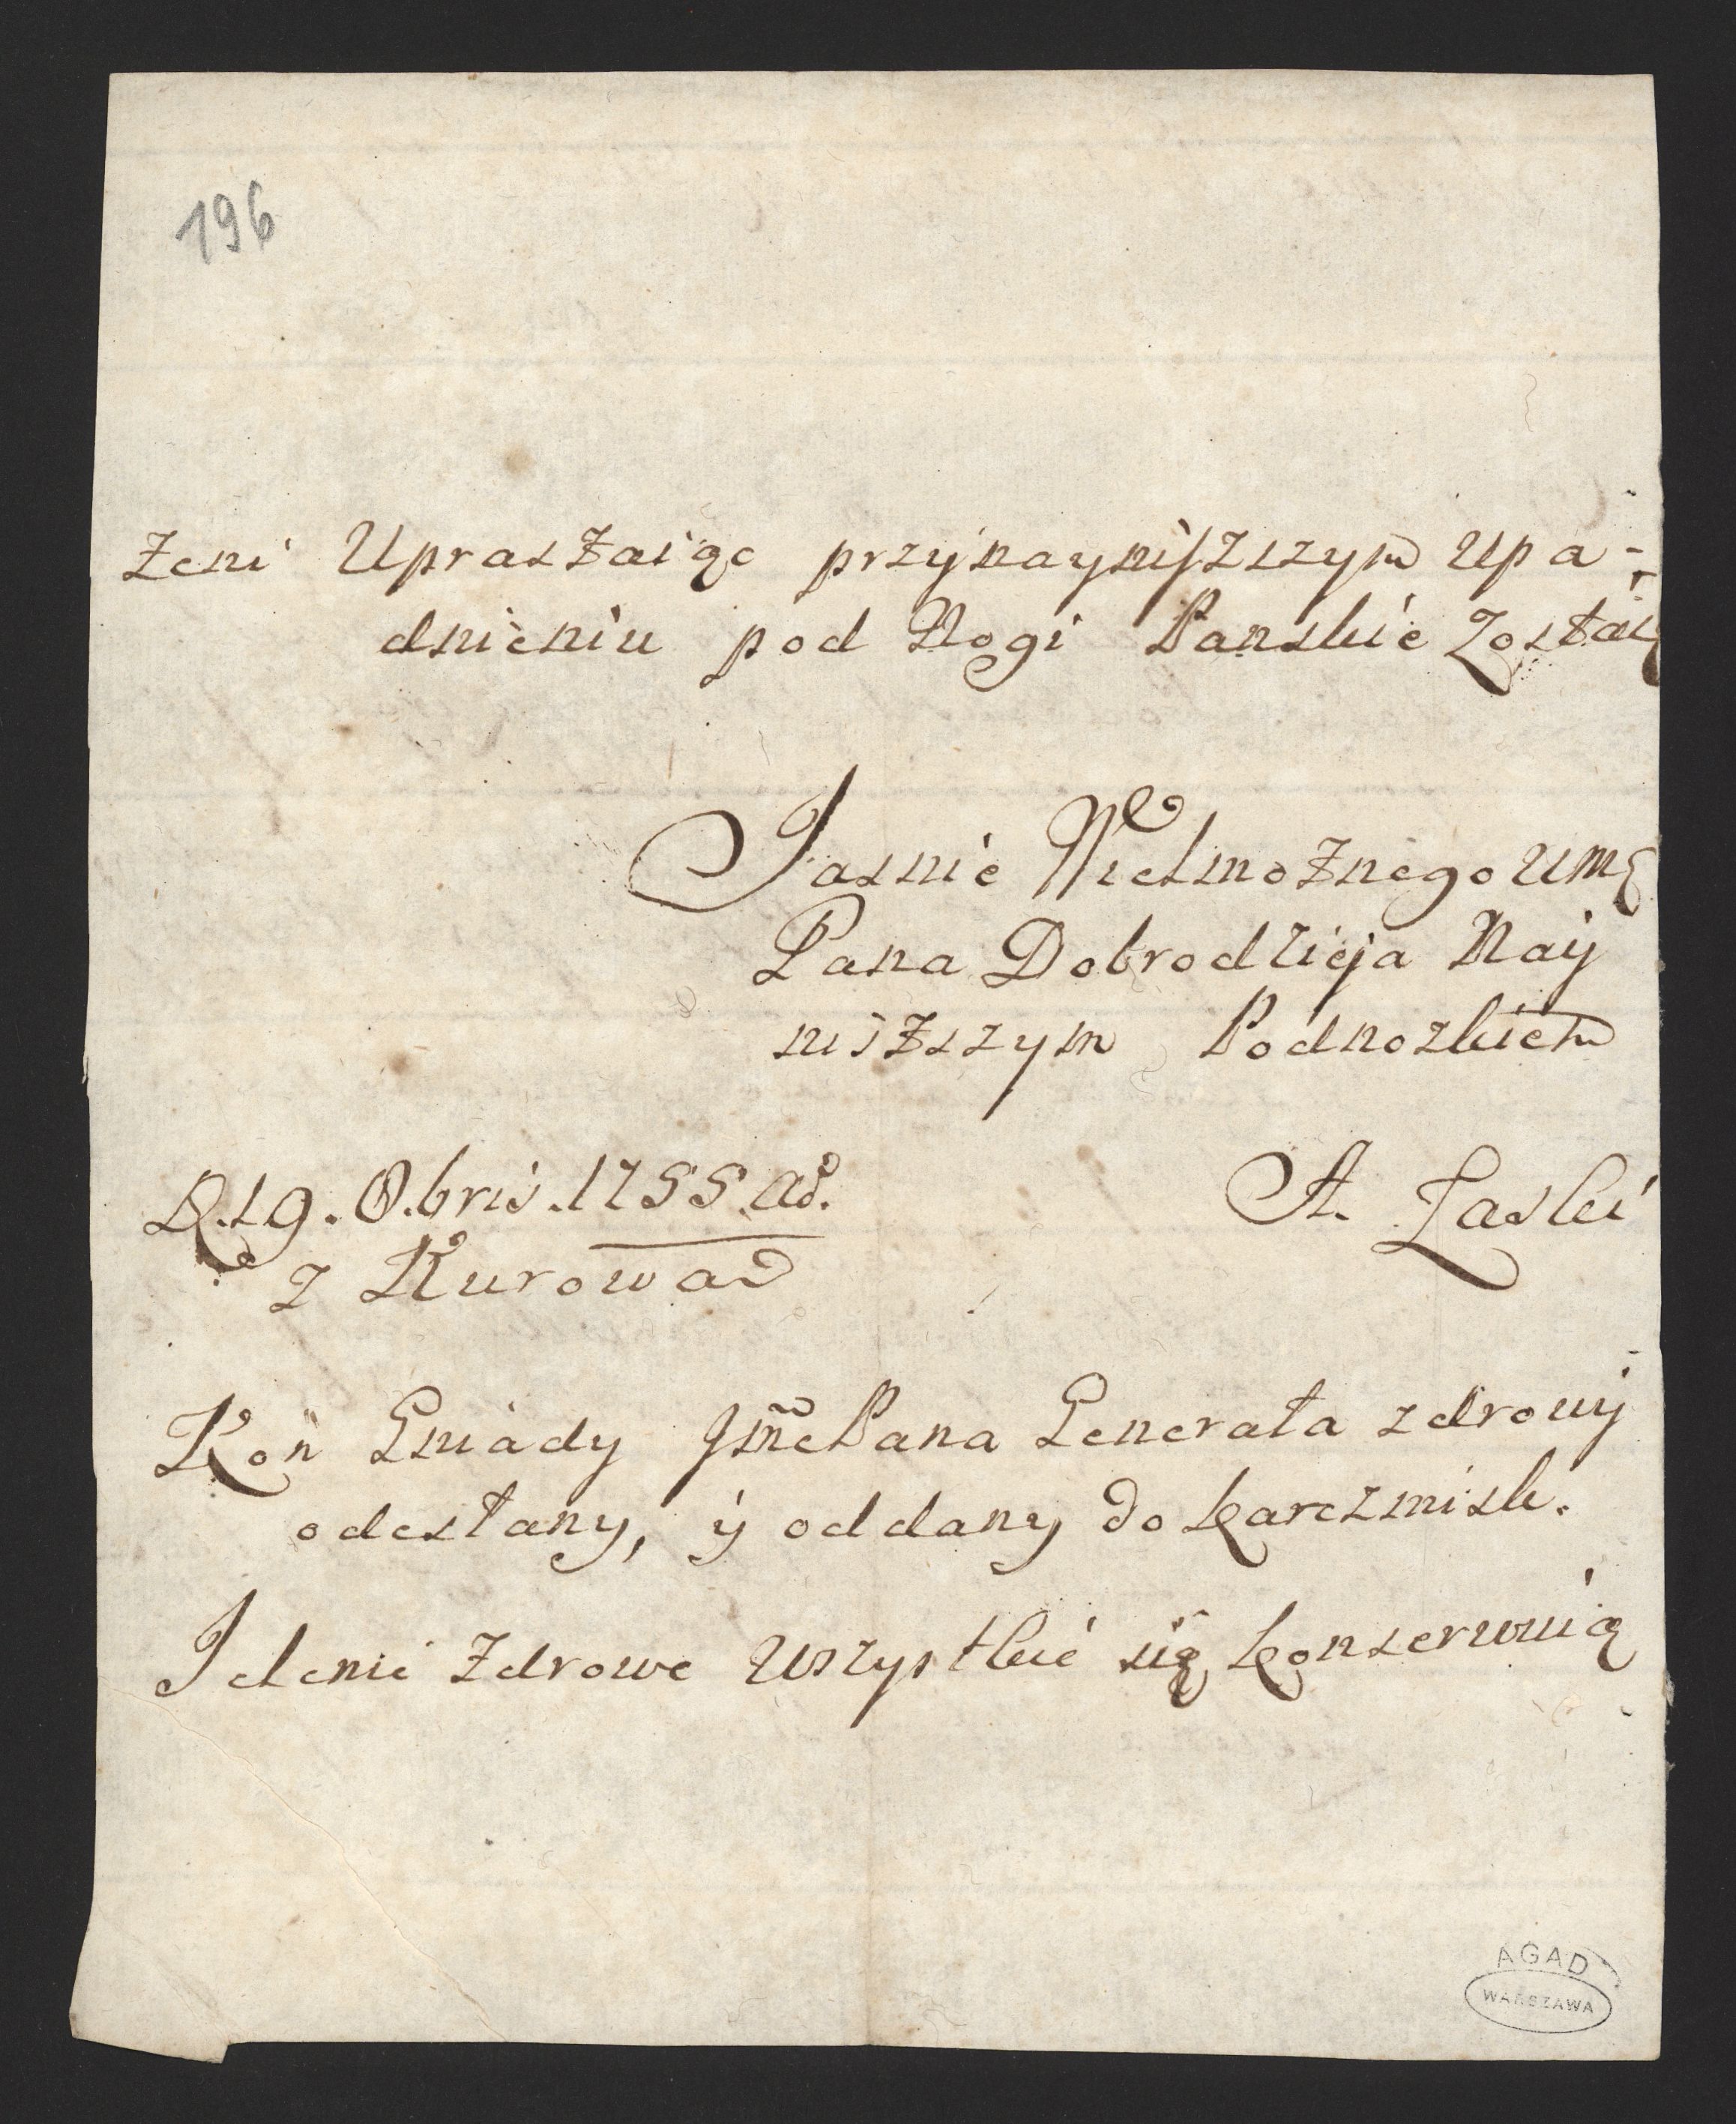 196
żeni Upraszaiąc przynayniższym upa-
dnieniu pod Nogi Panskie Zostaię
Jasnie Wielmożnego Umę
Pana Dobrodzieja Nay
niższym Podnozkiem
D. 19. 8.bris. 1755. ao.
A. Łaski
z Kurowa
Koń Gniady Jmć Pana Generała zdrowy
odesłany, ÿ oddany do karczmisk.
Jelenie Zdrowe wszystkie się konserwuią
AGAD
WARSZAWA